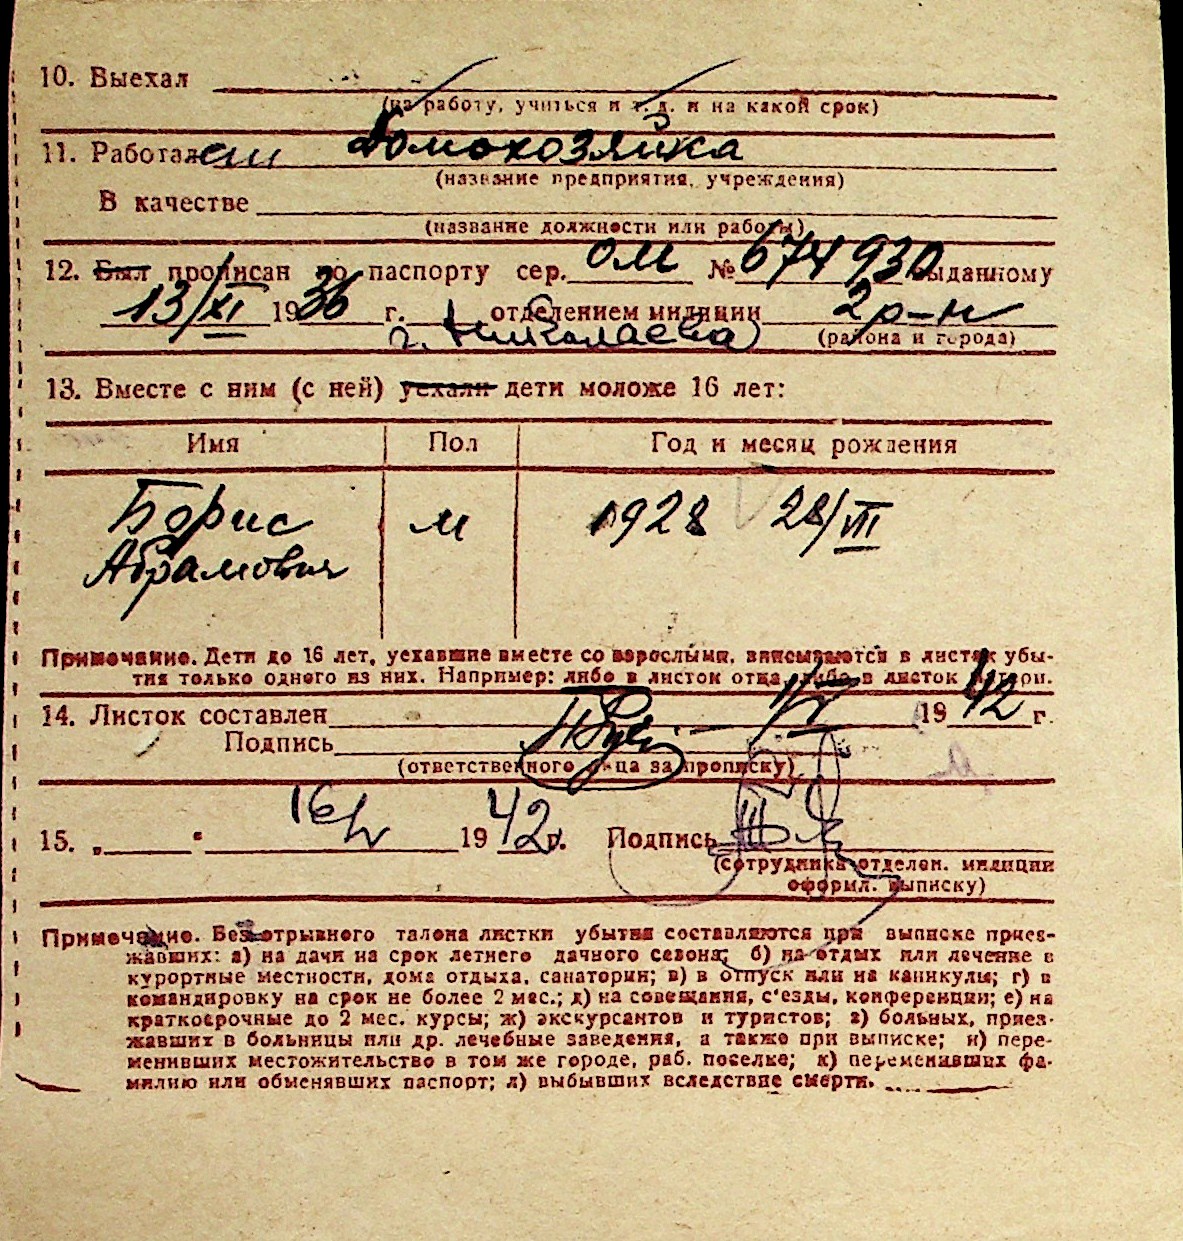 10. Выехал
(на работу, учиться и т. д. и на какой срок)
11. Работал Домохозяйка
(название предприятия, учреждения)
В качестве
(название должности или работы)
12. Был прописан по паспорту сер. ОМ № 674930 выданному
13/XI 1936 г. отделением милиции 2 р-н
г. Николаева (района и города)
13. Вместе с ним (с ней) уехали дети моложе 16 лет:
Имя Пол Год и месяц рождения
Борис м 1928 28/VIII
Абрамович
Примечание. Дети до 16 лет, уехавшие вместе со взрослыми, вписываются в листок убы-
тия только одного из них. Например: либо в листок отца, либо в листок матери.
14. Листок составлен 1942 г.
Подпись
(ответственного лица за прописку)
15. „ " 16/V 1942 г. Подпись
(сотрудника отделен. милиции
оформл. выписку)
Примечание. Без отрывного талона листки убытия составляются при выписке приез-
жавших: а) на дачи на срок летнего дачного сезона; б) на отдых или лечение в
курортные местности, дома отдыха, санатории; в) в отпуск или на каникулы; г) в
командировку на срок не более 2 мес.; д) на совещания, с'езды, конференции; е) на
краткосрочные до 2 мес. курсы; ж) экскурсантов и туристов; з) больных, приез-
жавших в больницы или др. лечебные заведения, а также при выписке; и) пере-
менивших местожительство в том же городе, раб. поселке; к) переменивших фа-
милию или обменявших паспорт; л) выбывших вследствие смерти.